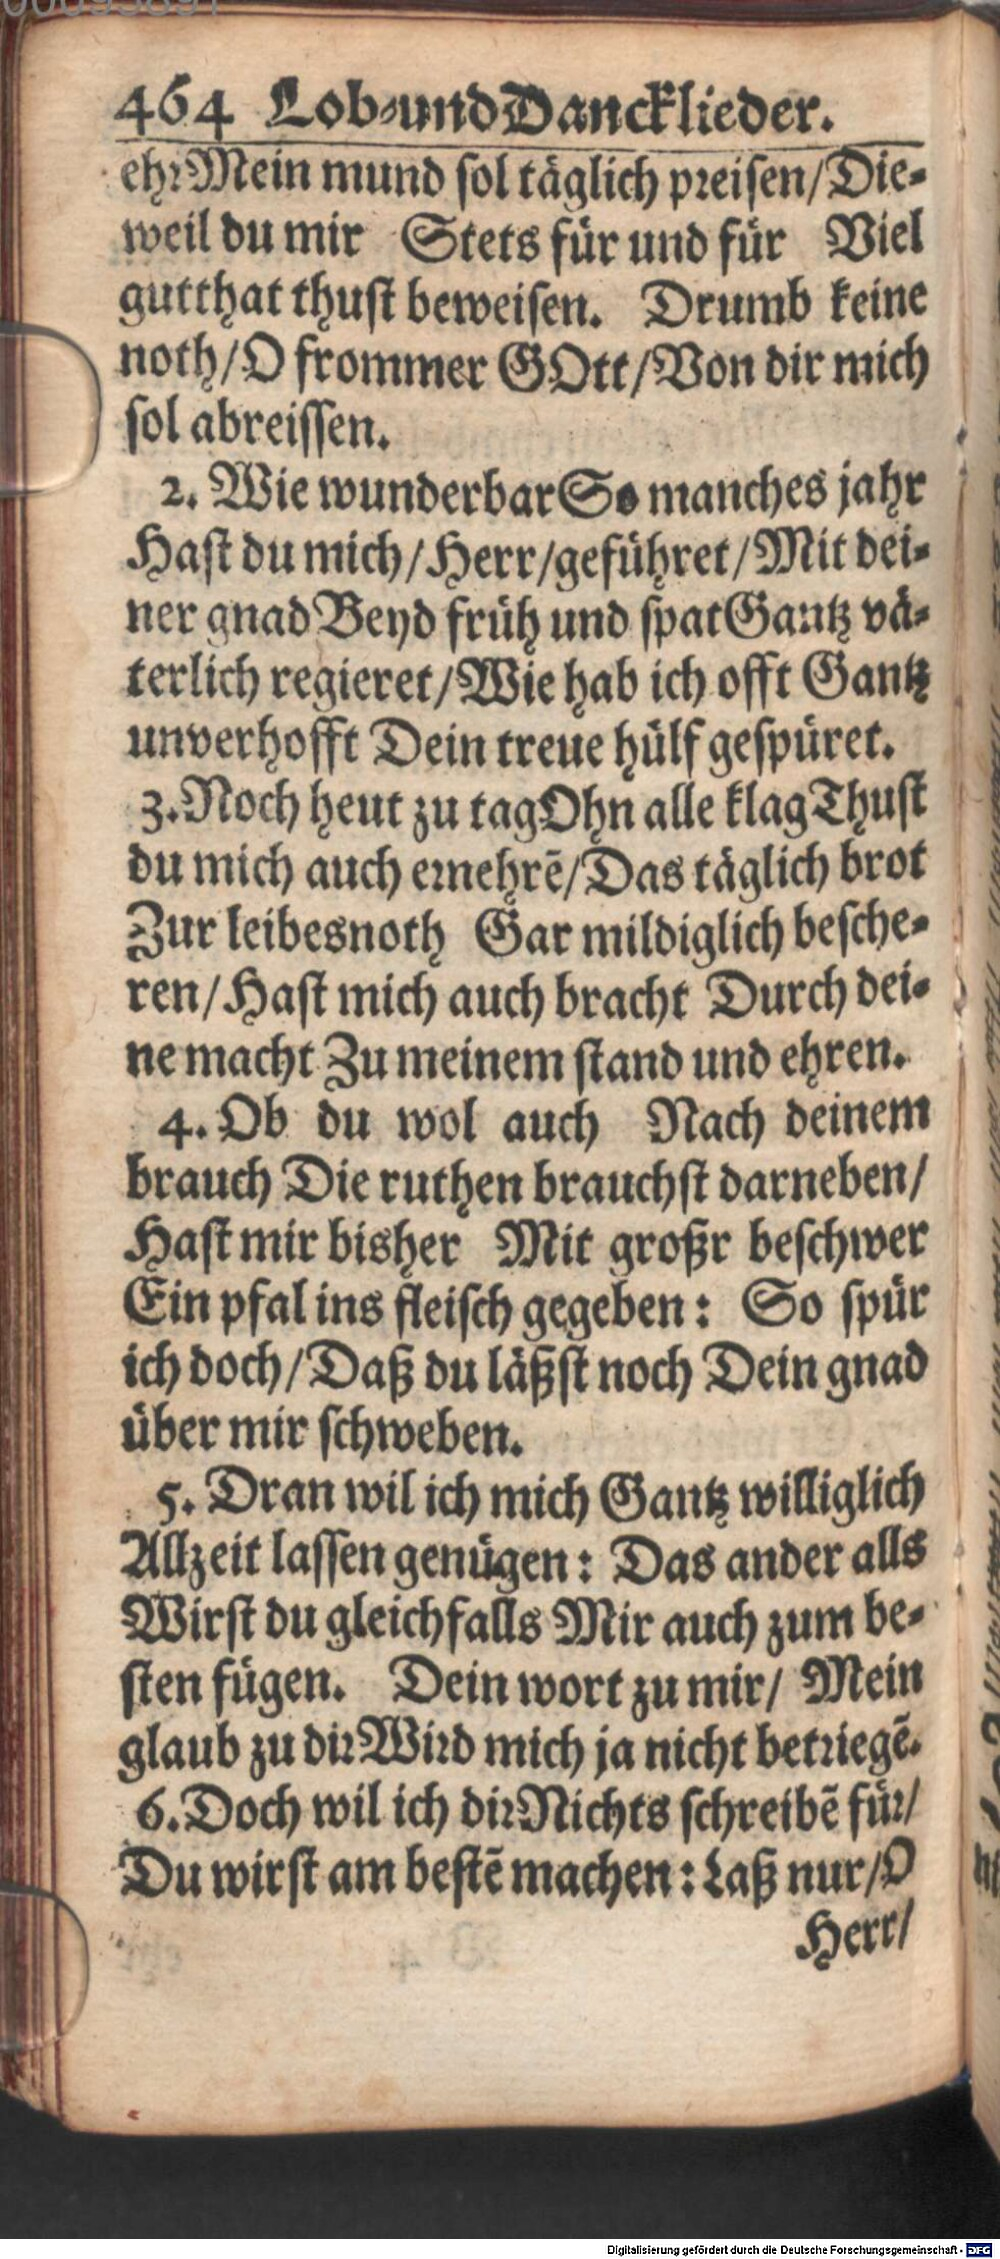 464 Lob-und Dancklieder.
ehr Mein mund sol täglich preisen/Die-
weil du mir Stets für und für Viel
gutthat thust beweisen. Drumb keine
noth/O frommer GOtt/Von dir mich
sol abreissen.
2. Wie wunderbar So manches jahr
Hast du mich/Herr/geführet/Mit dei-
ner gnad Beyd früh und spat Gantz vä-
terlich regieret/Wie hab ich offt Gantz
unverhofft Dein treue hülf gespüret.
3. Noch heut zu tag Ohn alle klag Thust
du mich auch ernehrē/Das täglich brot
Zur leibesnoth Gar mildiglich besche-
ren/Hast mich auch bracht Durch dei-
ne macht Zu meinem stand und ehren.
4. Ob du wol auch Nach deinem
brauch Die ruthen brauchst darneben/
Hast mir bisher Mit großr beschwer
Ein pfal ins fleisch gegeben: So spür
ich doch/Daß du läßst noch Dein gnad
über mir schweben.
5. Dran wil ich mich Gantz williglich
Allzeit lassen genügen: Das ander alls
Wirst du gleichfalls Mir auch zum be-
sten fügen. Dein wort zu mir/ Mein
glaub zu dir Wird mich ja nicht betriegē.
6. Doch wil ich dir Nichts schreibē für/
Du wirst am bestē machen: Laß nur/O
Herr/
Digitalisierung gefördert durch die Deutsche Forschungsgemeinschaft - DFG